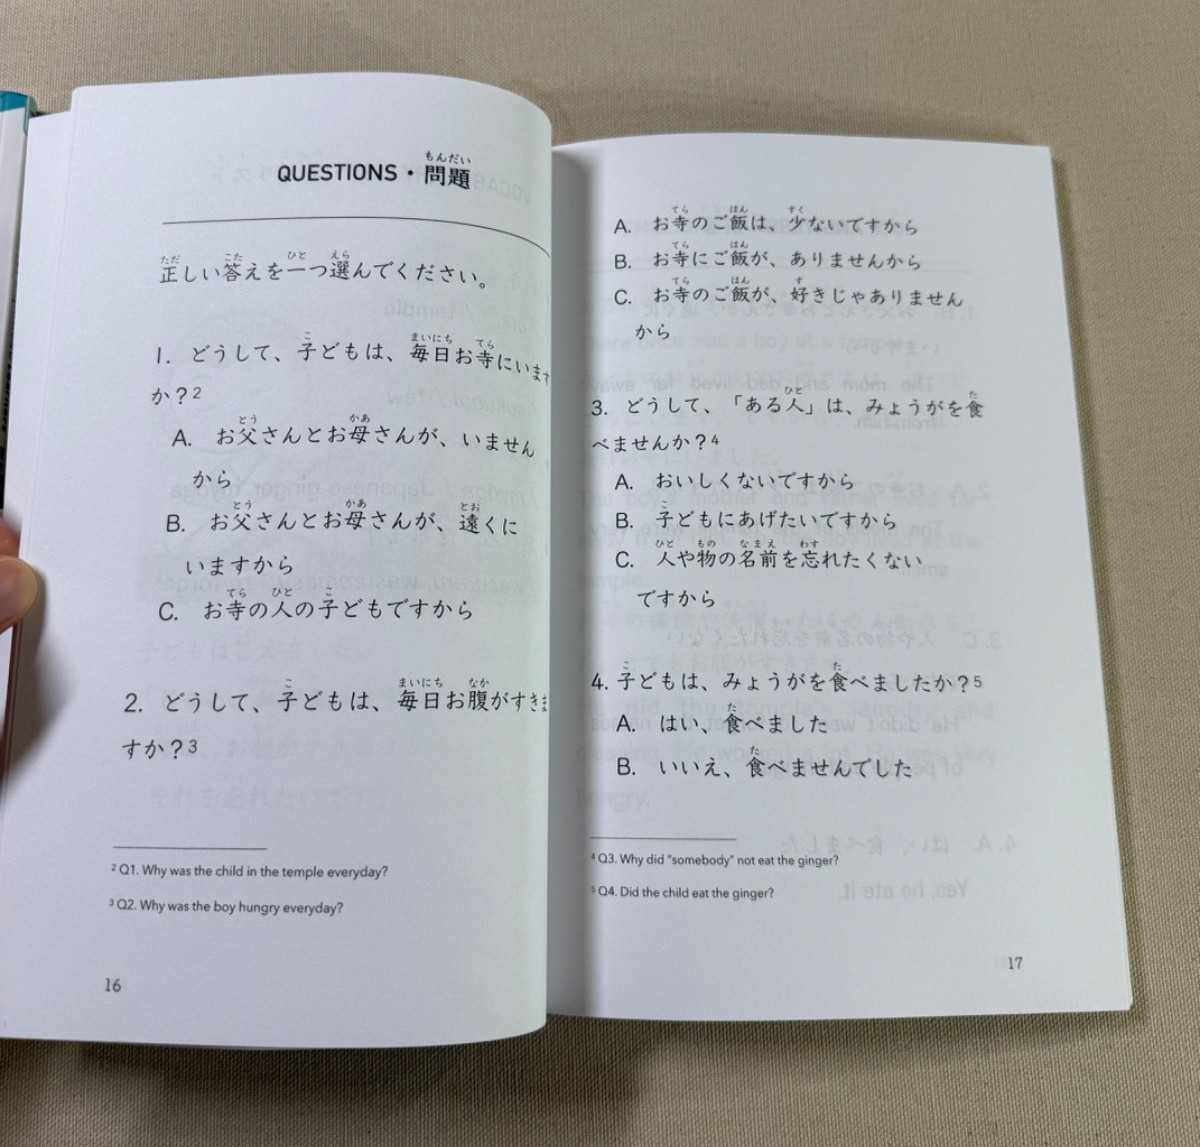 QUESTIONS・問題
もんだい
正しい答えを一つ選んでください。
ただ こた ひと えら
1. どうして、子どもは、毎日お寺にいます
こ まいにち てら
か？2
A. お父さんとお母さんが、いません
とう かあ
から
B. お父さんとお母さんが、遠くに
とう かあ とお
いますから
C. お寺の人の子どもですから
てら ひと こ
2. どうして、子どもは、毎日お腹がすきま
こ まいにち なか
すか？3
2 Q1. Why was the child in the temple everyday?
3 Q2. Why was the boy hungry everyday?
16
A. お寺のご飯は、少ないですから
てら はん すく
B. お寺にご飯が、ありませんから
てら はん
C. お寺のご飯が、好きじゃありません
てら はん す
から
3. どうして、「ある人」は、みょうがを食
ひと た
べませんか？4
A. おいしくないですから
B. 子どもにあげたいですから
こ
C. 人や物の名前を忘れたくない
ひと もの なまえ わす
ですから
4. 子どもは、みょうがを食べましたか？5
こ た
A. はい、食べました
た
B. いいえ、食べませんでした
た
4 Q3. Why did "somebody" not eat the ginger?
5 Q4. Did the child eat the ginger?
17